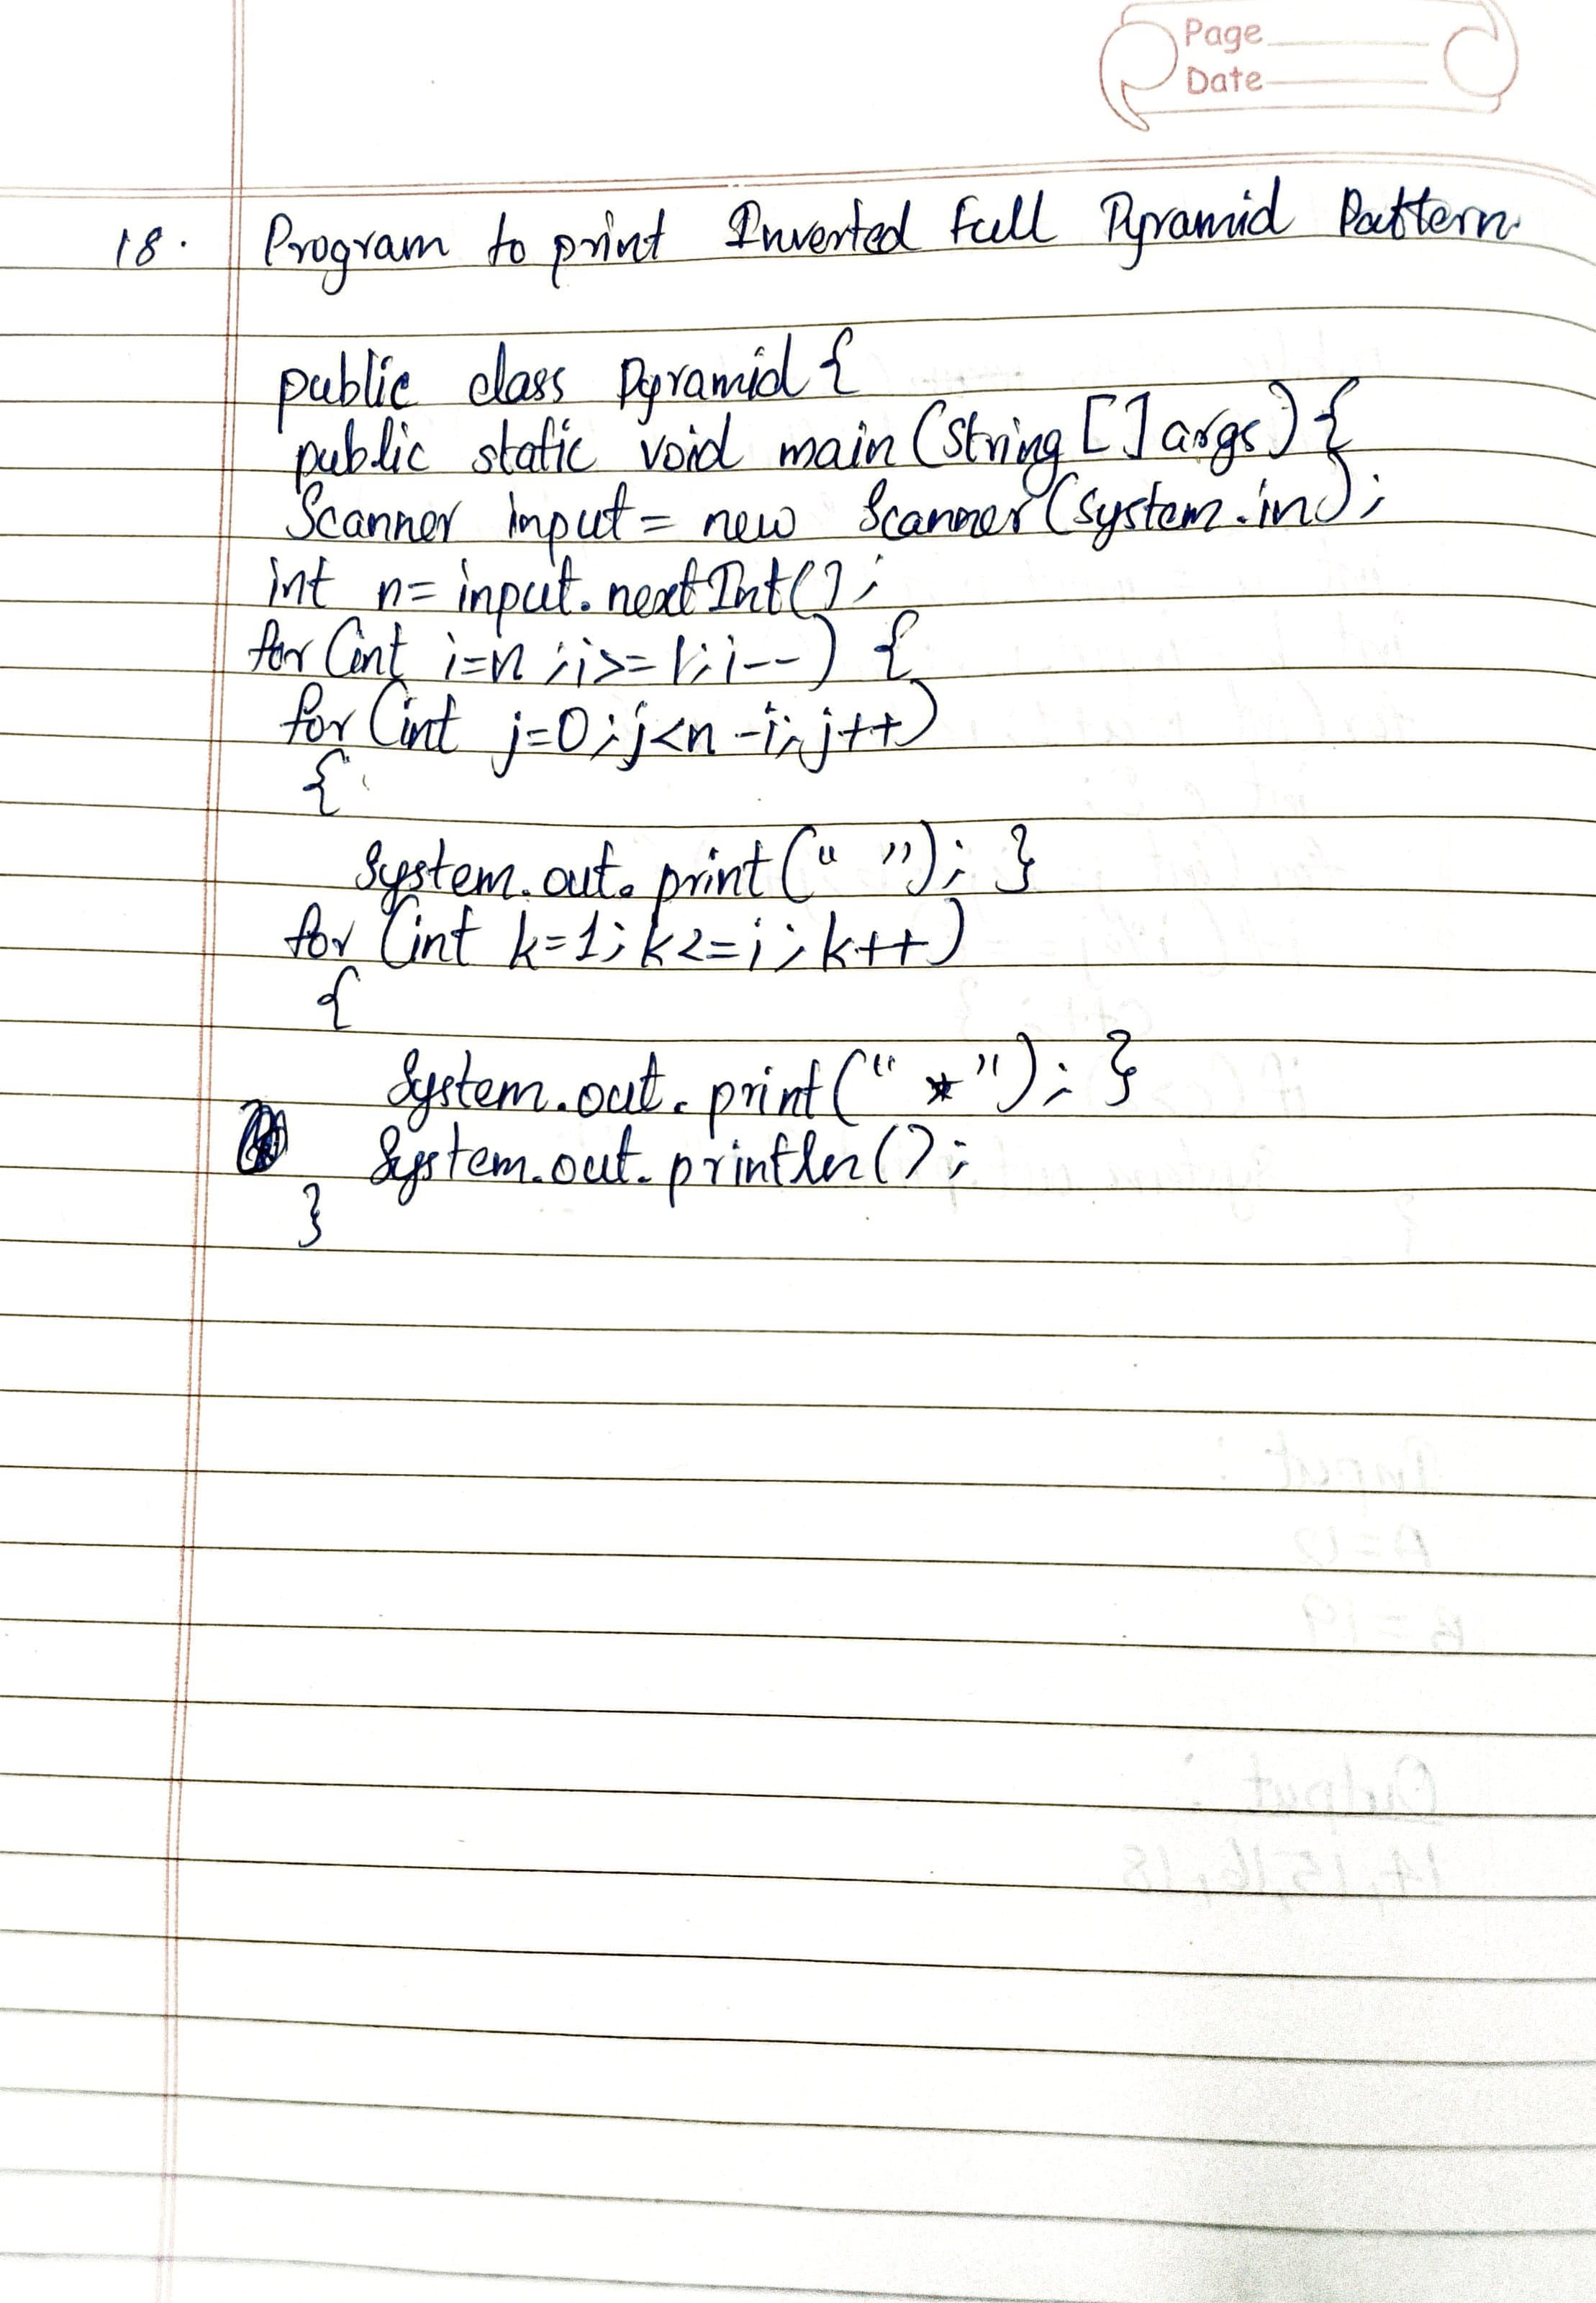 Page
Date
18. Program to print Inverted Full Pyramid Pattern.
public class Pyramid {
public static void main (String [] args) {
Scanner input = new Scanner (System.in);
int n = input.nextInt();
for (int i=n ; i>=1; i--) {
for (int j=0; j<n-i; j++)
{
System.out.print (" "); }
for (int k=1; k<=i; k++)
{
System.out.print (" *"); }
System.out.println();
}